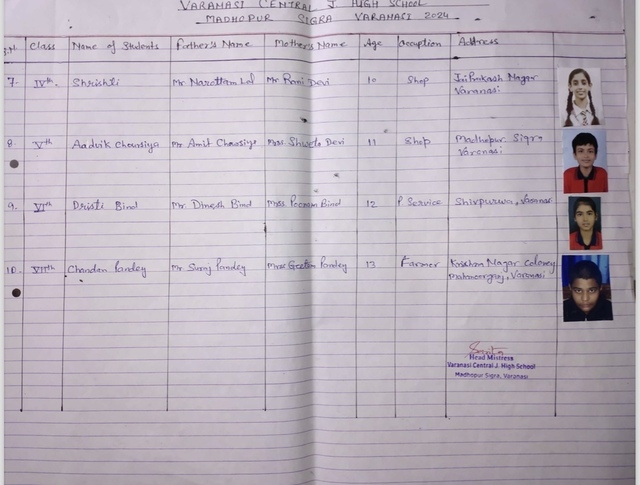 VARANASI CENTRAL J HIGH SCHOOL
MADHOPUR SIGRA VARANASI 2024
S.N. Class Name of Students Father's Name Mother's Name Age Occuption Address
7. IVth. Shrishti Mr Narottam Lal Mr Rani Devi 10 Shop Jai Prakash Nagar
Varanasi
8. Vth Aadvik Chaursiya Mr. Amit Chaursiya Mrs. Shweta Devi 11 Shop Madhopur Sigra
Varanasi
9. VIth Dristi Bind Mr. Dinesh Bind Mrs Poonam Bind 12 P Service Shivpurwa, Varanasi
10. VIIth Chandan Pandey Mr Suraj Pandey Mrs. Geeta Pandey 13 Farmer Krishna Nagar Coloney
Mahmoorganj, Varanasi
Head Mistress
Varanasi Central J. High School
Madhopur Sigra, Varanasi